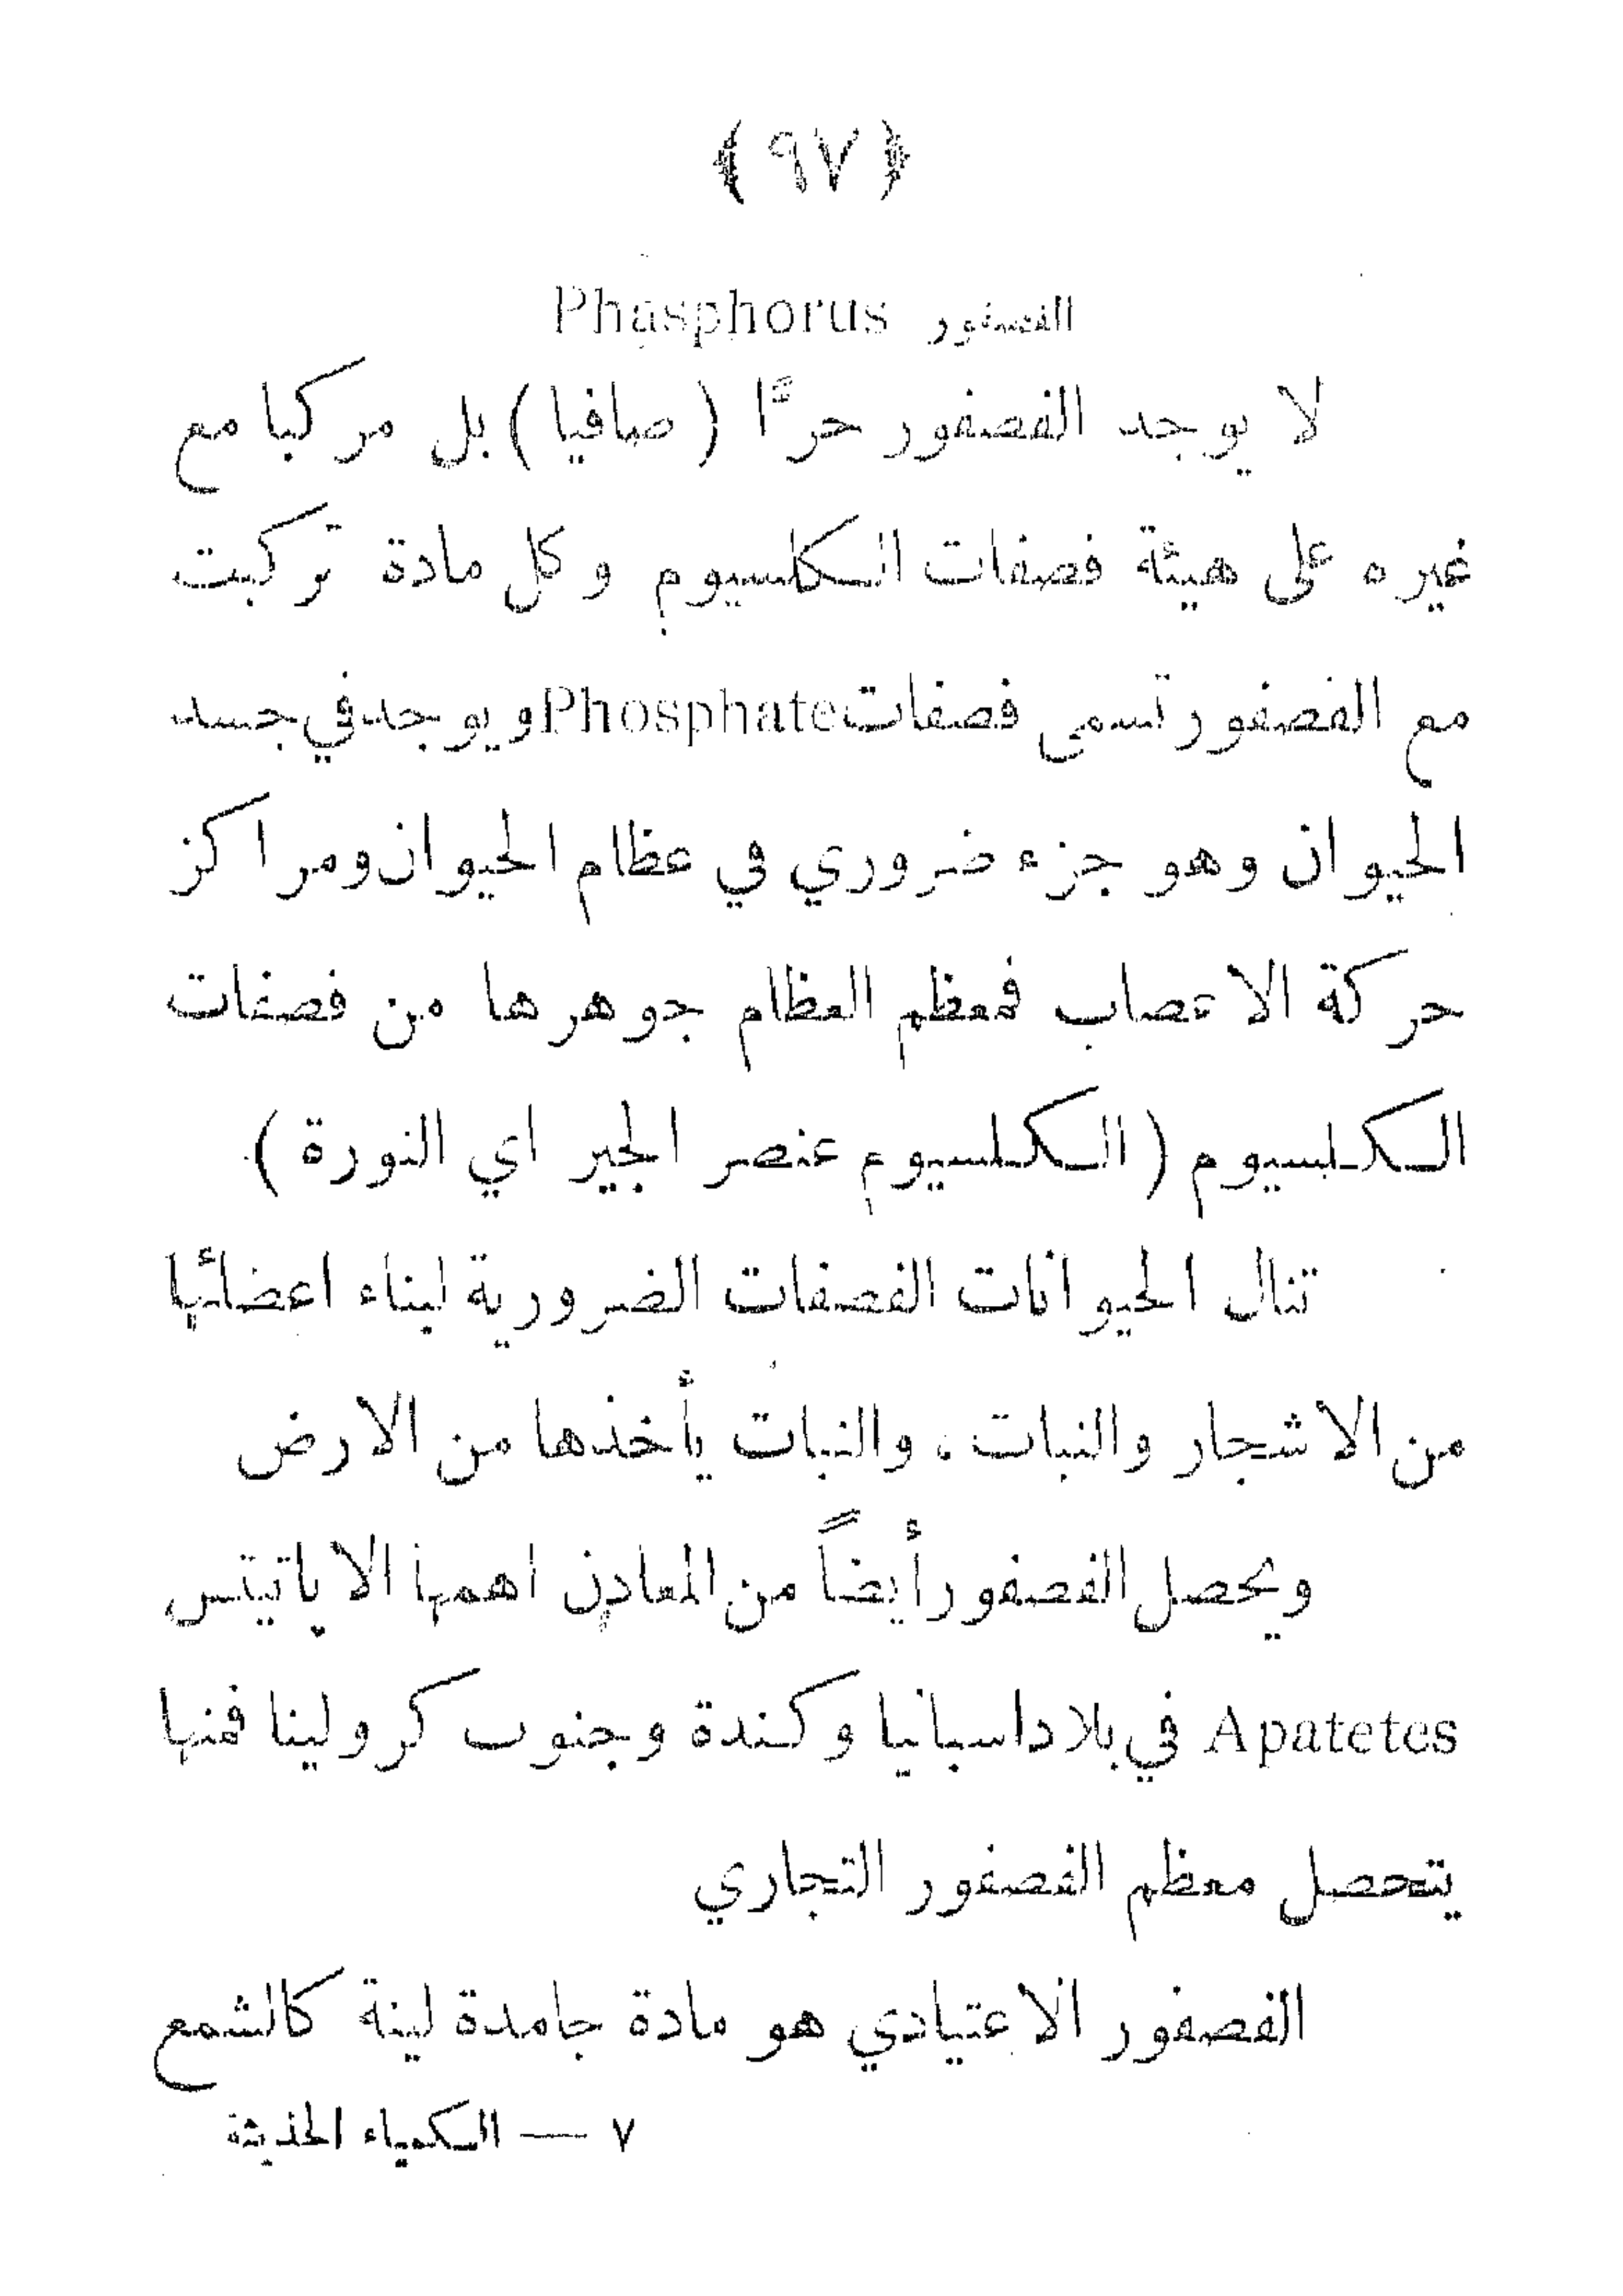 ﴿ ٩٧ ﴾
الفصفور Phasphorus
لا يوجد الفصفور حرًّا ( صافيا ) بل مركبا مع
غيره على هيئة فصفات الكلسيوم وكل مادة تركبت
مع الفصفور تسمى فصفات Phosphate ويوجد في جسد
الحيوان وهو جزء ضروري في عظام الحيوان ومراكز
حركة الاعصاب فمعظم العظام جوهرها من فصفات
الكلسيوم ( الكلسيوم عنصر الجير اي النورة ).
تنال الحيوانات الفصفات الضرورية لبناء اعضائها
من الاشجار والنبات ، والنبات يأخذها من الارض
ويحصل الفصفور أيضاً من المعادن اهمها الاپاتيتس
Apatetes في بلاد اسبانيا وكندة وجنوب كرولينا فمنها
يتحصل معظم الفصفور التجاري
الفصفور الاعتيادي هو مادة جامدة لينة كالشمع
٧ — الكمياء الحذيثة